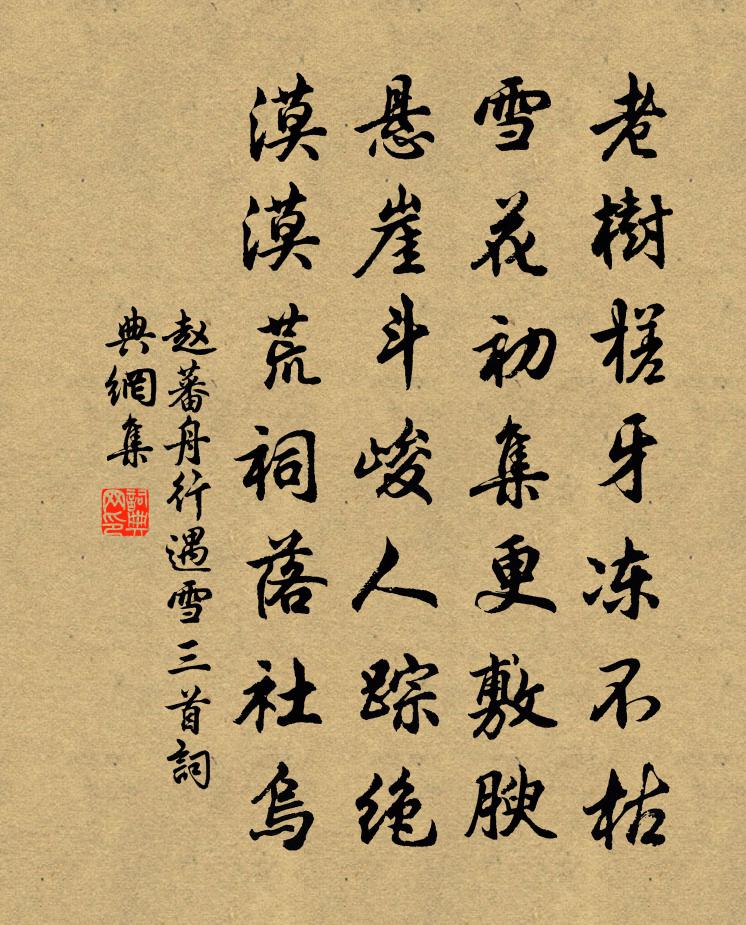 老樹槎牙冻不枯
雪花初集更敷腴
悬崖斗峻人踪绝
漠漠荒祠落社烏
赵蕃舟行遇雪三首詞
典網集
詞典
网印